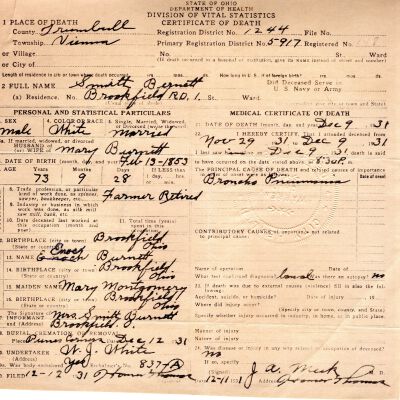 STATE OF OHIO
DEPARTMENT OF HEALTH
DIVISION OF VITAL STATISTICS
CERTIFICATE OF DEATH
1 PLACE OF DEATH
County Trumbull Registration District No. 1244 File No.
Township Vienna Primary Registration District No. 5917 Registered No.
or Village No. St. Ward
or City of
Length of residence in city or town where death occurred yrs. mos. ds. How long in U. S., if of foreign birth? yrs. mos. ds.
2 FULL NAME Smith Burnett Did Deceased Serve in U. S. Navy or Army
(a) Residence. No. Brookfield R.D. 1. St. Ward.
PERSONAL AND STATISTICAL PARTICULARS
3. SEX 4. COLOR OR RACE 5. Single, Married, Widowed, or Divorced (write the word)
Male White Married
5a. If married, widowed, or divorced
HUSBAND of
(or) WIFE of Mary Burnett
6. DATE OF BIRTH Feb 13-1853
7. AGE Years Months Days If LESS than
73 9 28 1 day, hrs.
or min.
8. Trade, profession, or particular kind of work done, as spinner, sawyer, bookkeeper, etc. Farmer Retired
9. Industry or business in which work was done, as silk mill, saw mill, bank, etc.
10. Date deceased last worked at this occupation (month and year) 11. Total time (years) spent in this occupation
12. BIRTHPLACE (city or town) Brookfield
(State or country) Ohio
13. NAME Enoch Burnett
14. BIRTHPLACE (city or town) Brookfield
(State or country) Ohio
15. MAIDEN NAME Mary Montgomery
16. BIRTHPLACE (city or town) Brookfield
(State or country) Ohio
The Signature of
17. INFORMANT Mrs. Smith Burnett
(and Address) Brookfield O.
18. BURIAL, CREMATION, OR REMOVAL
Place Corners Date Dec 12 31
19. UNDERTAKER W. J. White
(Address)
Was body embalmed Yes Embalmer's No. 837 A
20. FILED 12-12 31
MEDICAL CERTIFICATE OF DEATH
21. DATE OF DEATH (month, day, and year) Dec 9 31
22. I HEREBY CERTIFY, That I attended deceased from
Nov 29 31 Dec 9 31
I last saw alive on Dec 9 31 death is said
to have occurred on the date stated above, at 8:30 P.
The PRINCIPAL CAUSE OF DEATH and related causes of importance
Date of onset
Broncho Pneumonia
CONTRIBUTORY CAUSES of importance not related to principal cause:
Name of operation Date of
What test confirmed diagnosis? Was there an autopsy? no
23. If death was due to external causes (violence) fill in also the following:
Accident, suicide, or homicide? Date of injury 19
Where did injury occur?
(Specify city or town, county, and State)
Specify whether injury occurred in industry, in home, or in public place
Manner of injury
Nature of injury
24. Was disease or injury in any way related to occupation of deceased?
no
If so, specify
(Signed) J. A. Meek
12-11 1931 (Address)